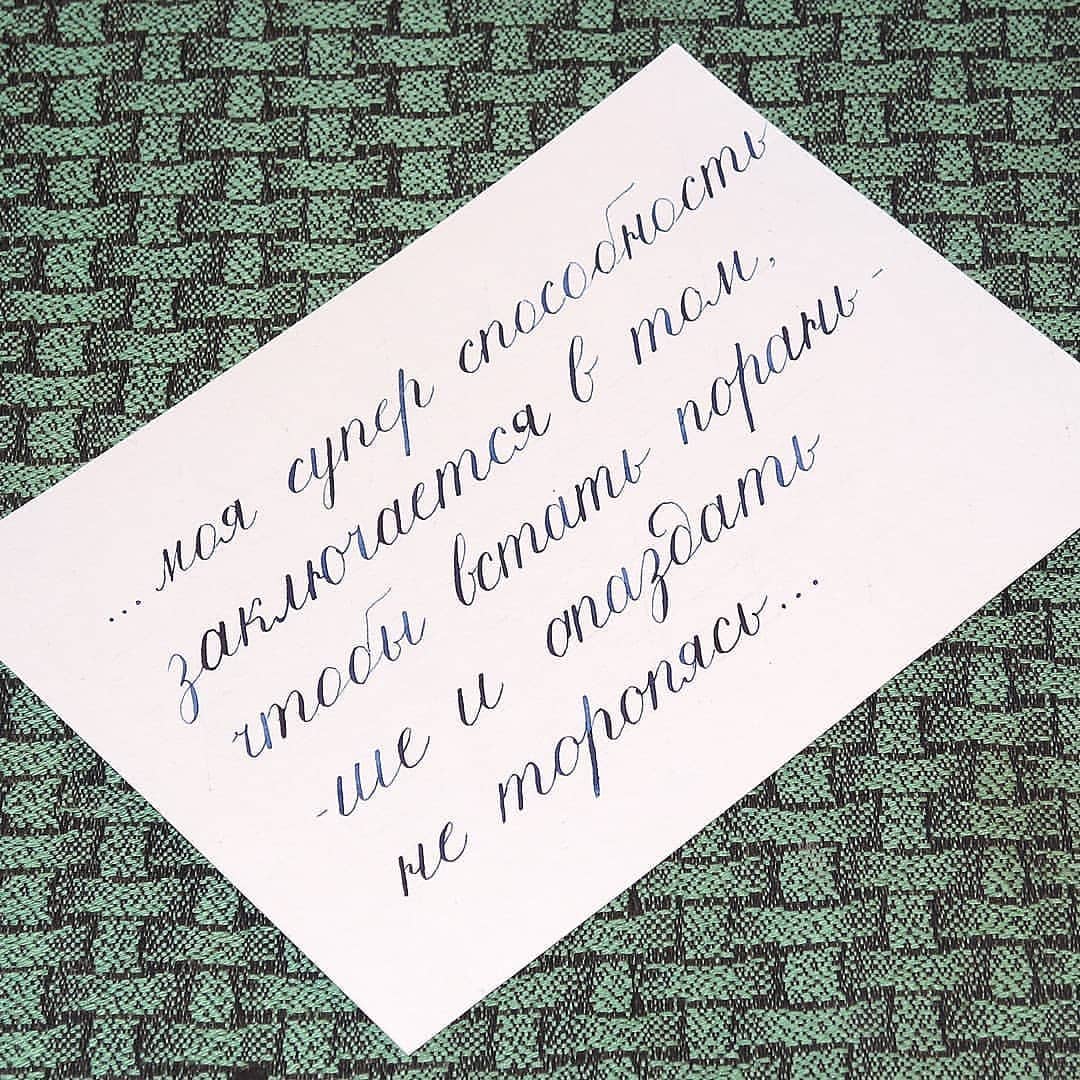 ...моя супер способность
заключается в том,
чтобы встать порань-
-ше и опаздать
не торопясь...